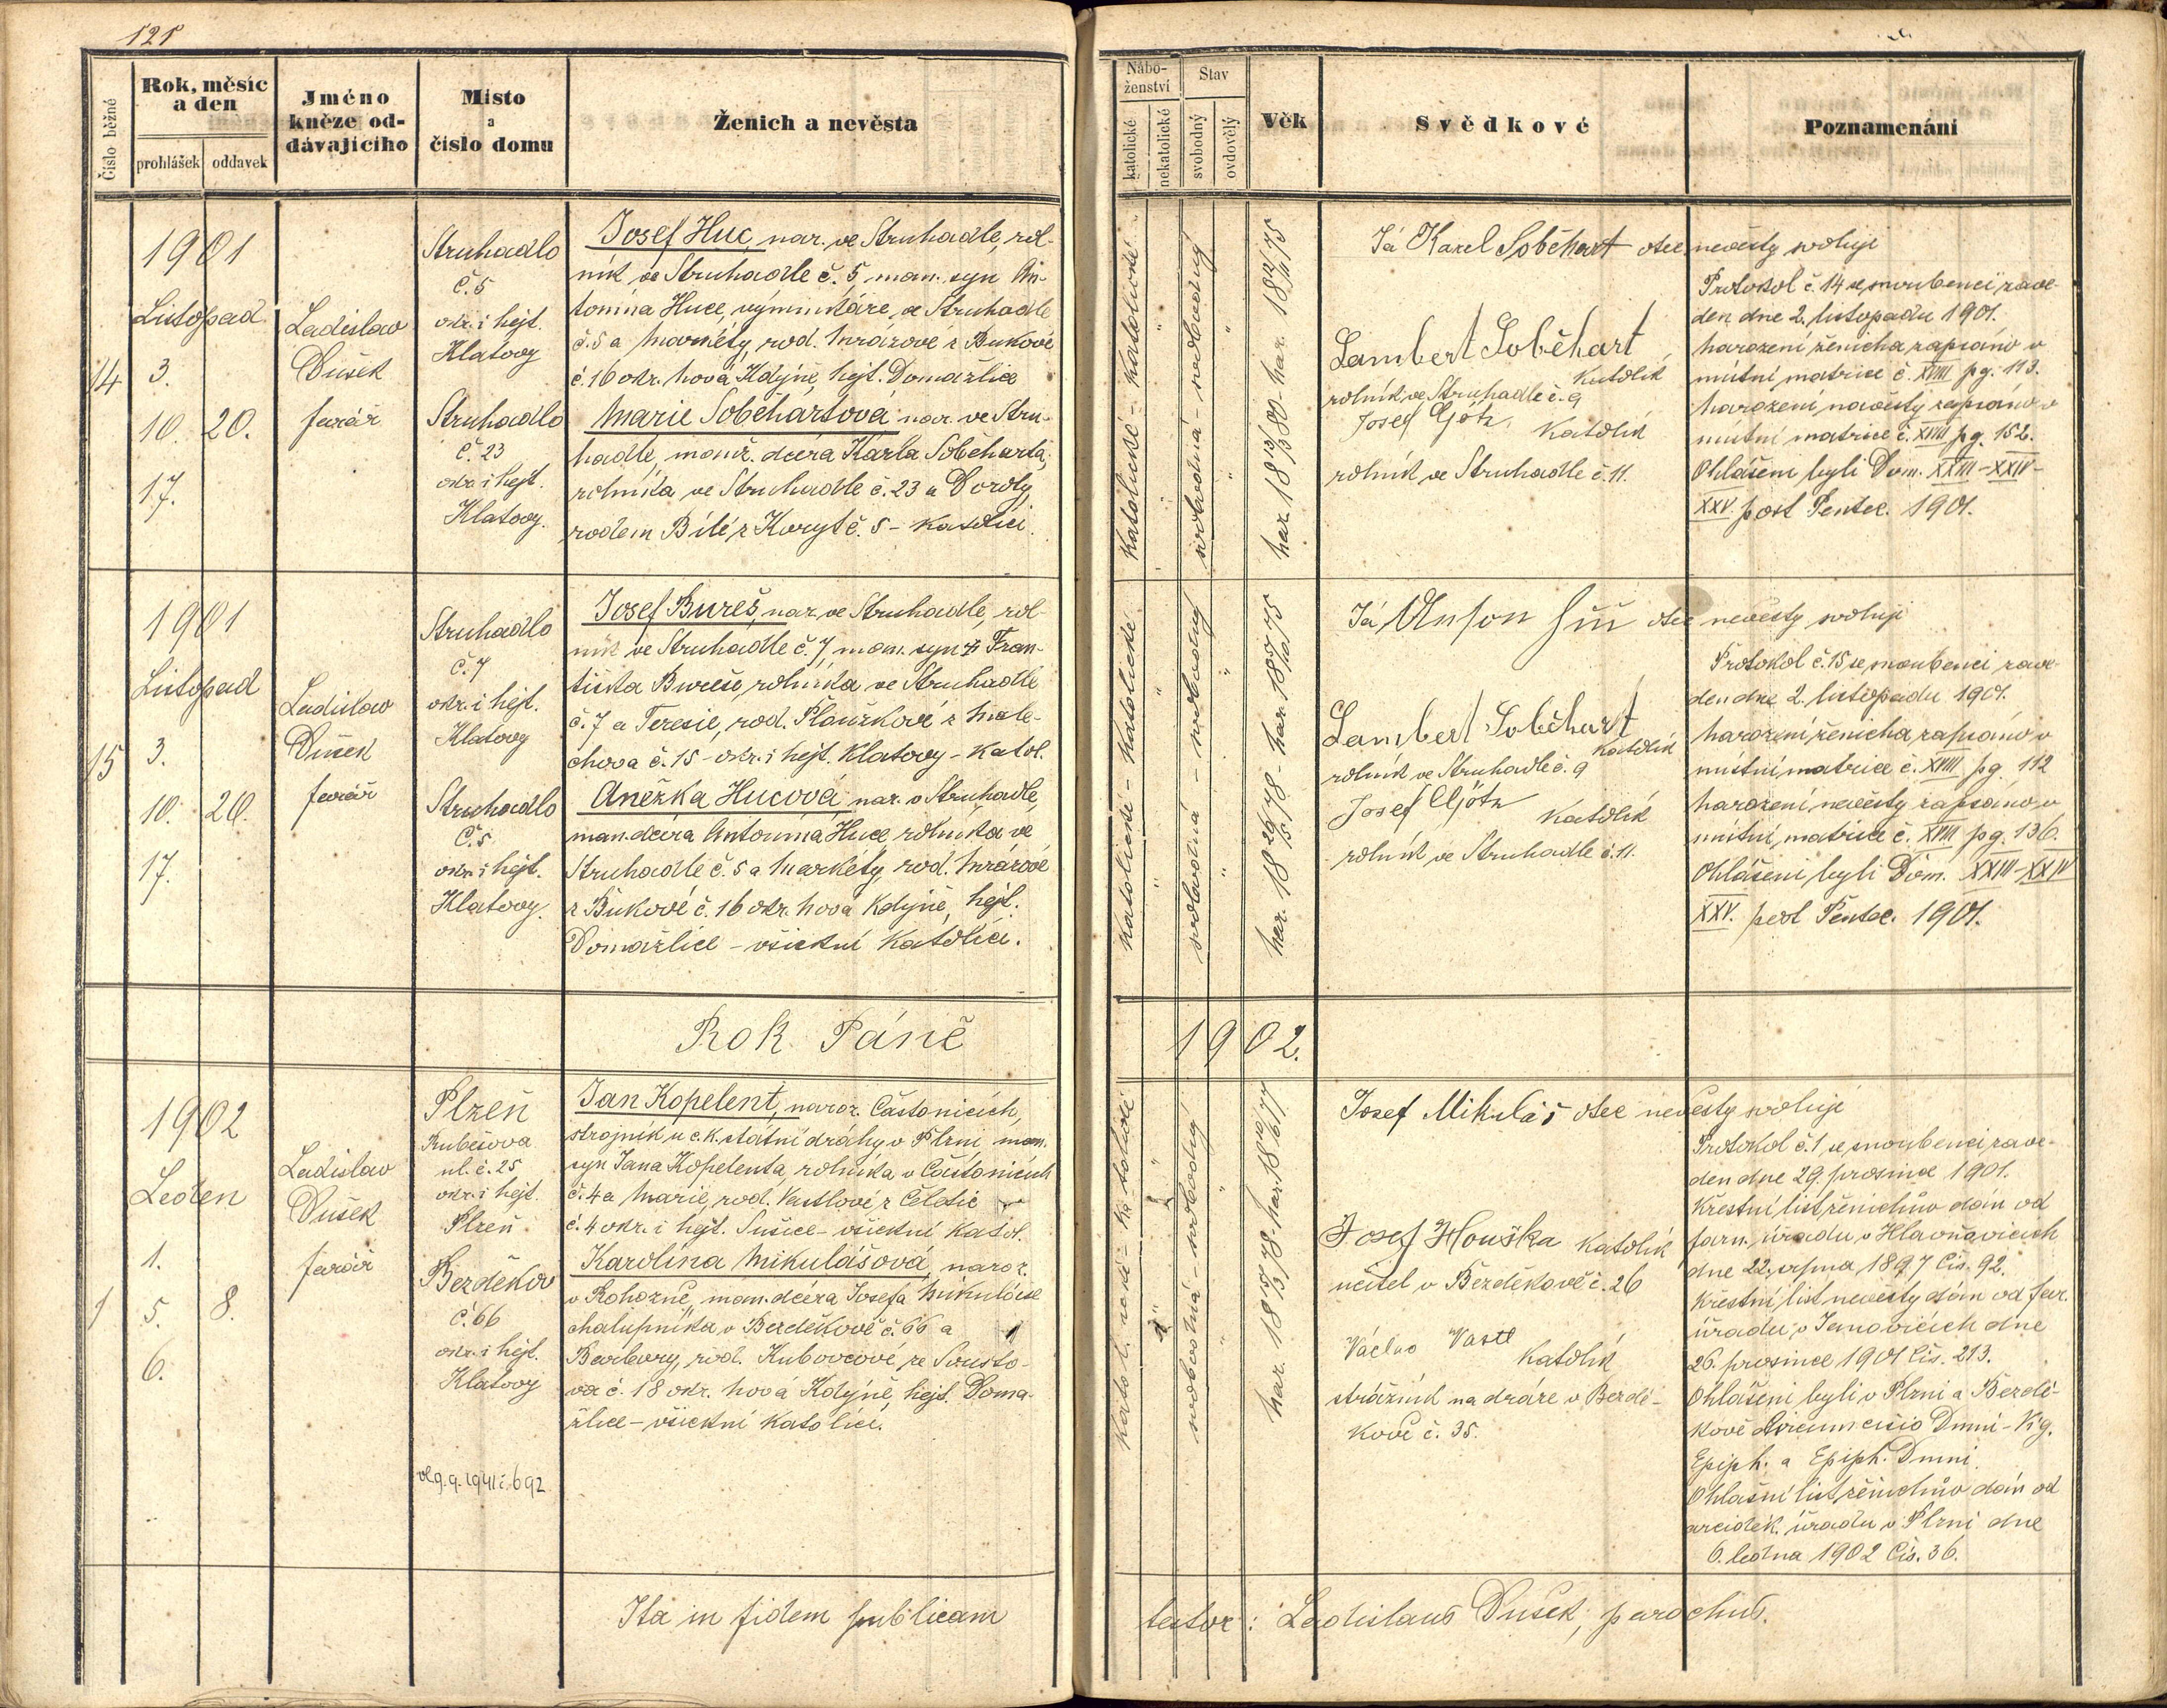 121
Číslo běžné
Rok, měsíc
a den
prohlášek
oddavek
Jméno
kněze od-
dávajícího
Místo
a
číslo domu
Ženich a nevěsta
Nábo-
ženství
katolické
nekatolické
Stav
svobodný
ovdovělý
Věk
Svědkové
Poznamenání
14
1901
Listopad
3.
10. 20.
17.
Ladislav
Dušek
farář
Struhadlo
č. 5
okr. i hejt.
Klatovy
Struhadlo
č. 23
okr. i hejt.
Klatovy.
Josef Huc, nar. ve Struhadle, rol-
ník ve Struhadle č. 5, man. syn An-
tonína Huce, výminkáře, ve Struhadle
č. 5 a Markéty, rod. Mrázové z Bukové
č. 16 okr. Nová Kdyně, hejt. Domažlice
Marie Soběhartová nar. ve Stru-
hadle, manž. dcera Karla Soběharta,
rolníka ve Struhadle č. 23 a Doroty,
rodem Bílé z Koryt č. 5 - katolíci.
katolické - katolické
svobodná - svobodný
nar. 18 13/3 80 - nar. 18 12/11 75
Já Karel Soběhart otec nevěsty svoluji
Lambert Soběhart
katolík
rolník ve Struhadle č. 9
Josef Götz,
katolík
rolník ve Struhadle č. 11.
Protokol č. 14 se snoubenci zave-
den dne 2. listopadu 1901.
Narození ženicha zapsáno v
místní matrice č. XVIII pg. 113.
Narození nevěsty zapsáno v
místní matrice č. XVIII pg. 152.
Ohlášeni byli Dom. XXIII-XXIV-
XXV. post Pentec. 1901.
15
1901
Listopad
3.
10. 20.
17.
Ladislav
Dušek
farář
Struhadlo
č. 7
okr. i hejt.
Klatovy
Struhadlo
č. 5
okr. i hejt.
Klatovy.
Josef Bureš, nar. ve Struhadle, rol-
ník ve Struhadle č. 7, man. syn Fran-
tiška Bureše, rolníka ve Struhadle
č. 7 a Teresie, rod. Ploužkové z Male-
chova č. 15 - okr. i hejt. Klatovy - katol.
Anežka Hucová, nar. v Struhadle,
man. dcera Antonína Huce, rolníka ve
Struhadle č. 5 a Markéty, rod. Mrázové
z Bukové č. 16 okr. Nová Kdyně, hejt.
Domažlice - všickni katolíci.
katolické - katolické
svobodná - svobodný
Já Anton otec nevěsty svoluji
Lambert Soběhart
katolík
rolník ve Struhadle č. 9
Josef Götz
katolík
rolník ve Struhadle č. 11.
Protokol č. 15 se snoubenci zave-
den dne 2. listopadu 1901.
Narození ženicha zapsáno v
místní matrice č. XVIII pg. 112
Narození nevěsty zapsáno v
místní matrice č. XVIII pg. 136.
Ohlášeni byli Dom. XXIII-XXIV
XXV. post Pentec. 1901.
Rok Páně 1902.
1
1902
Leden
1.
5. 8.
6.
Ladislav
Dušek
farář
Plzeň
Rubešova
ul. č. 25
okr. i hejt.
Plzeň
Bezděkov
č. 66
okr. i hejt.
Klatovy
9.9.1941 č. 692
Jan Kopelent, naroz. Částonicích,
strojník u c.k. státní dráhy v Plzni man.
syn Jana Kopelenta, rolníka v Částonicích
č. 4 a Marie, rod. z Čeletic
č. 4 okr. i hejt. Sušice - všickni katol.
Karolina Mikulášová, naroz.
v Rohozně, man. dcera Josefa Mikuláše
chalupníka v Bezděkově č. 66 a
Barbory, rod. Kubovcové, ze Smržo-
va č. 18 okr. Nová Kdyně, hejt. Doma-
žlice - všickni katolíci.
svobodná - svobodný
Josef Mikuláš otec nevěsty svoluje
Josef Houška katolík
učitel v Bezděkově č. 26
Václav
katolík
strážník na dráze v Bezdě-
kově č. 35.
Protokol č. 1 se snoubenci zave-
den dne 29. prosince 1901.
Křestní list ženichův dán od
farn. úřadu v Hlavňovicích
dne 22. srpna 1897 čís. 92.
Křestní list nevěsty dán od far.
úřadu v Janovicích dne
26. prosince 1901 čís. 213.
Ohlášeni byli v Plzni a Bezdě-
kově Circumcisio Dmni - Vig.
Epiph. a Epiph. Dmni.
Ohlašní list ženichův dán od
arciděk. úřadu v Plzni dne
6. ledna 1902 čís. 36.
Ita in fidem publicam
testor: Ladislaus Dušek, parochus.